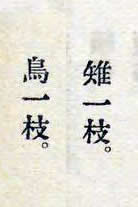 雉一枝。
鳥一枝。